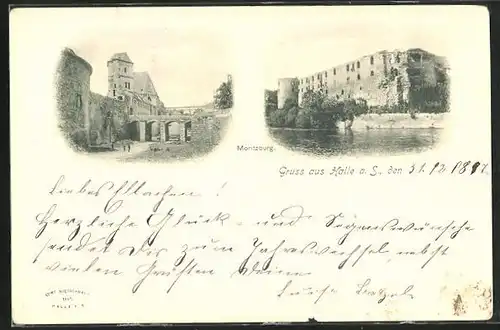 Moritzburg.
Gruss aus Halle a. S., den 31. 12. 1897.
Liebes !
Herzliche Glück- und Segenswünsche
sendet Dir zum Jahreswechsel nebst
vielen Grüßen Deine
Luise
HALLE A. S.